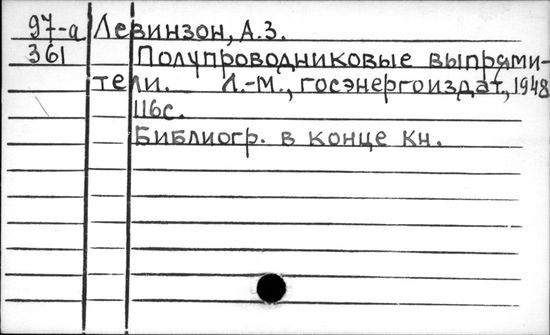 97-а Левинзон, А.З.
361 Полупроводниковые выпрями-
тели. Л.-М., госэнергоиздат, 1948
116с.
Библиогр. в конце кн.